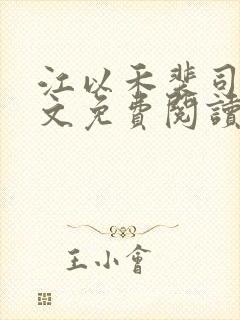 江以禾裴司
文免費閱讀
王小會